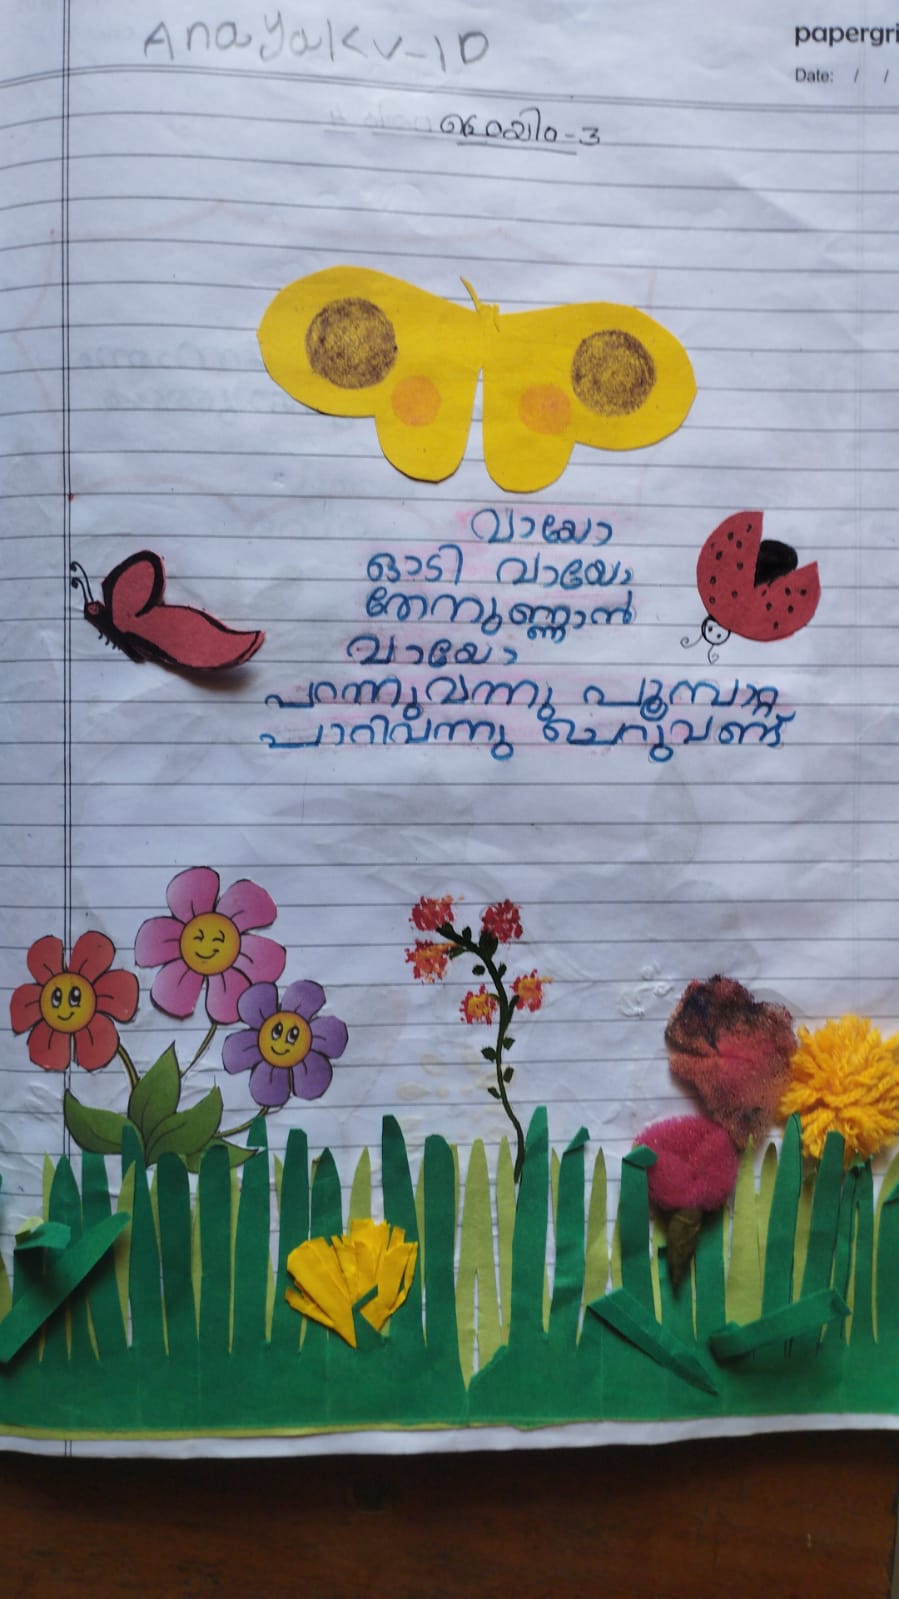 Anaya K V-1D
papergri
Date: / /
വായോ
ഓടി വായോ
തേനുണ്ണാൻ
വായോ
പറന്നുവന്നു പൂമ്പാറ്റ
പാറിവന്നു ചെറുവണ്ട്